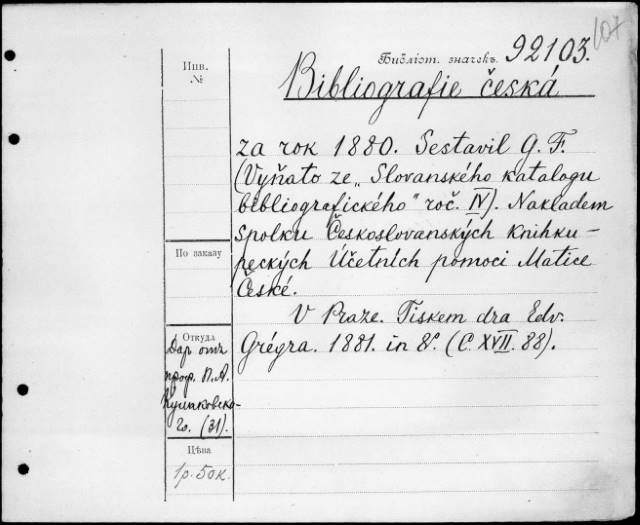 107
Библіот. значекъ 92103.
Инв.
№
Bibliografie česká
za rok 1880. Sestavil G. F.
(Vyňato ze „Slovanského katalogu
bibliografického" roč. IV). Nakladem
Spolku Československých knihku-
peckých Účetních pomoci Matice
České.
V Praze. Tiskem dra Edv.
Grégra. 1881. in 8º. (C. XVII. 88).
По заказу
Откуда
Даръ отъ
проф. П. А.
Кулаковско-
го. (31).
Цѣна
1р. 50к.